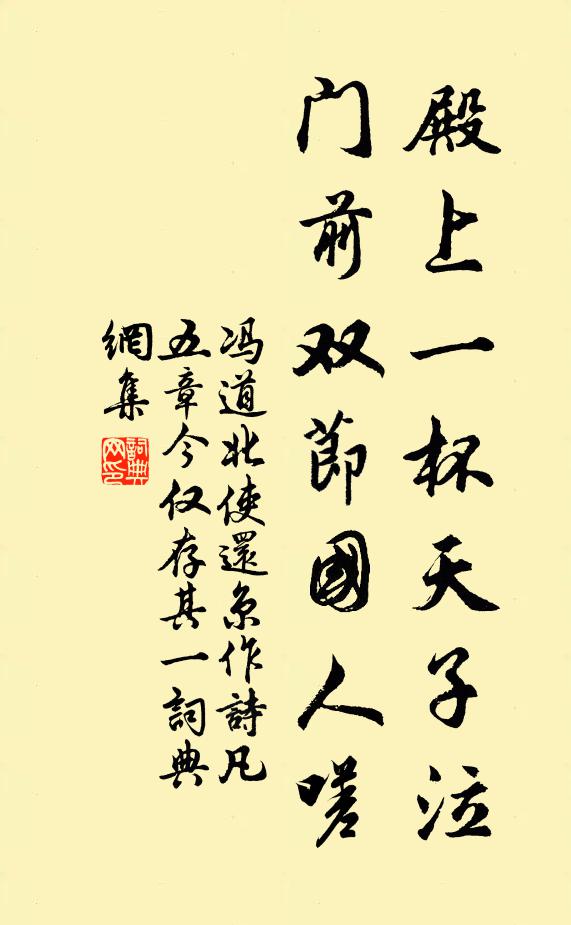 殿上一杯天子泣
门前双節國人嗟
冯道北使還京作詩凡
五章今仅存其一詞典
網集
詞典
网印